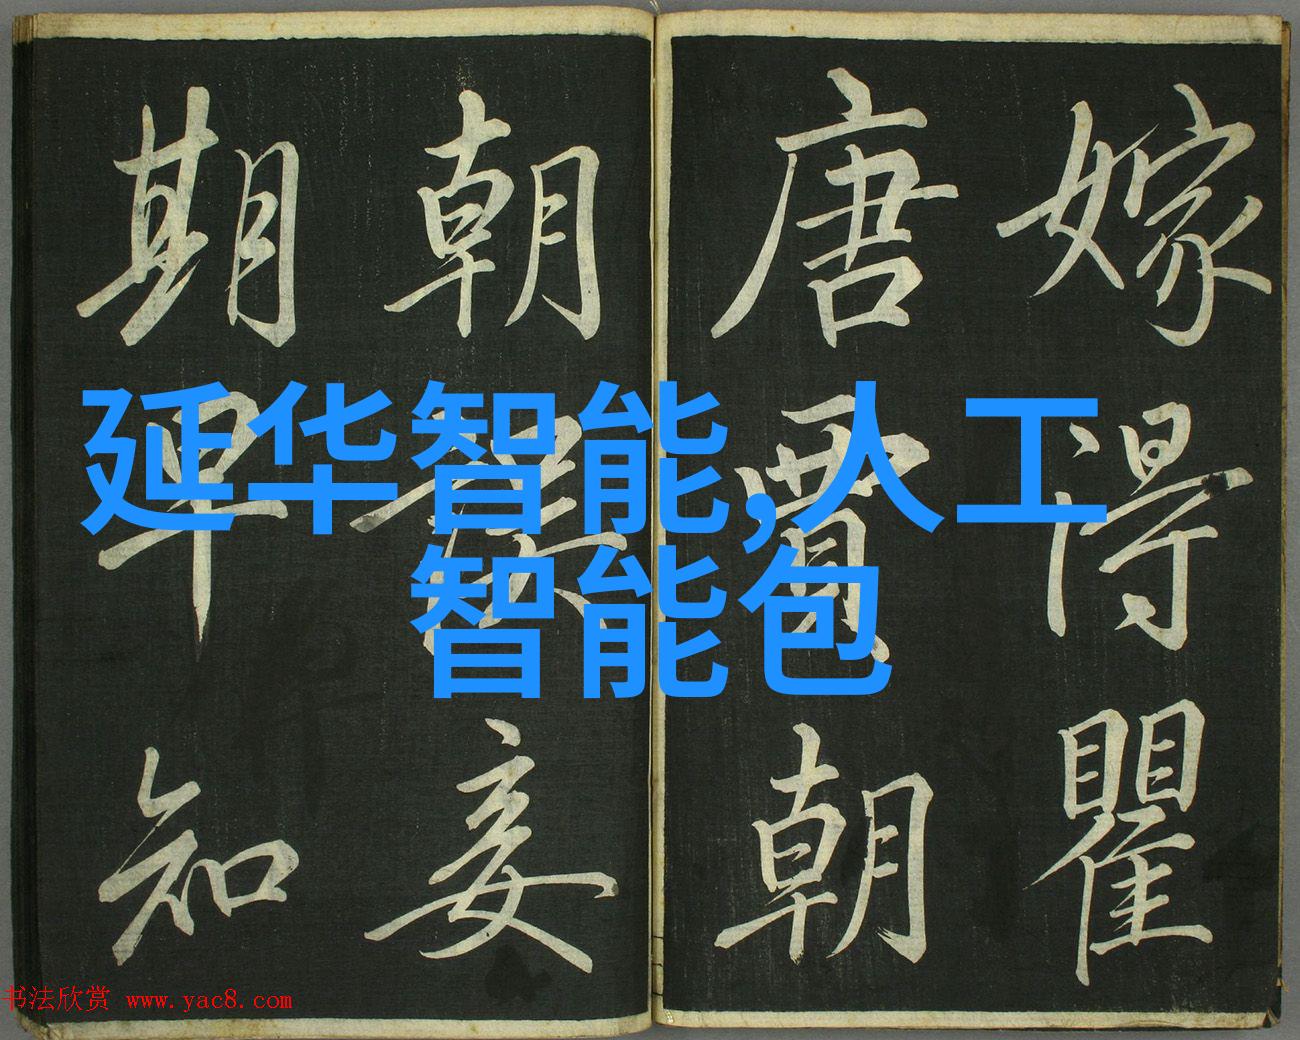 嫁得瞿
唐賈朝
朝妾
期早知
延华智能,人工
智能包
书法欣赏 www.yac8.com